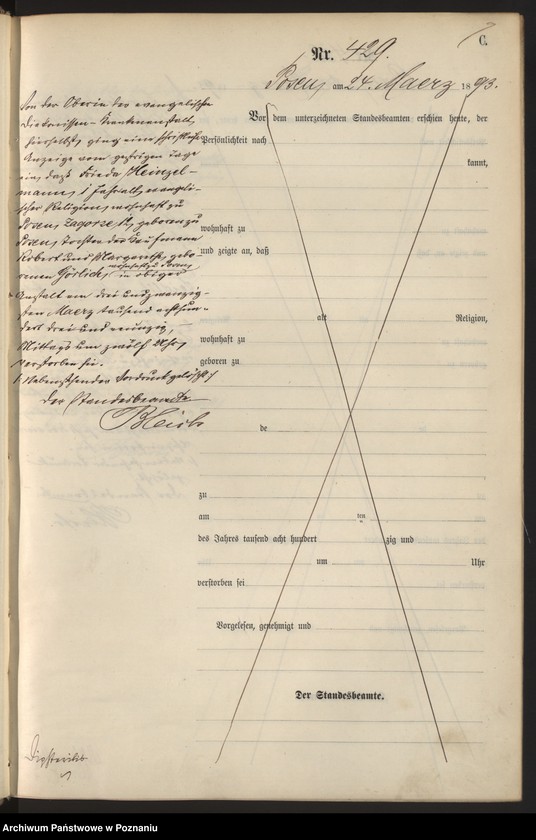 C.
Nr. 429.
Posen, am 24. Maerz 1893.
Von der Oberin der evangelische
Diakonissen-Krankenanstalt,
hierselbst, ging eine schriftliche
Anzeige vom gestrigen Tage
ein, daß Frieda Heinzel-
mann, 1 Jahr alt, evangeli-
scher Religion, wohnhaft zu
Posen, Zagorze, geboren zu
Posen, Tochter des Kaufmann
Robert und Margarethe, gebo-
renen Görlich, wohnhaft zu Posen, in obiger
Anstalt am drei und zwanzig-
sten Maerz tausend achthun-
dert drei und neunzig,
Mittags um zwölf Uhr,
verstorben sei.
Nebenstehender Vordruck gelöscht.
Der Standesbeamte
Vor dem unterzeichneten Standesbeamten erschien heute, der
Persönlichkeit nach
kannt,
wohnhaft zu
und zeigte an, daß
alt Religion,
wohnhaft zu
geboren zu
de
zu
am ten
des Jahres tausend acht hundert zig und
um Uhr
verstorben sei
Vorgelesen, genehmigt und
Der Standesbeamte.
Archiwum Państwowe w Poznaniu